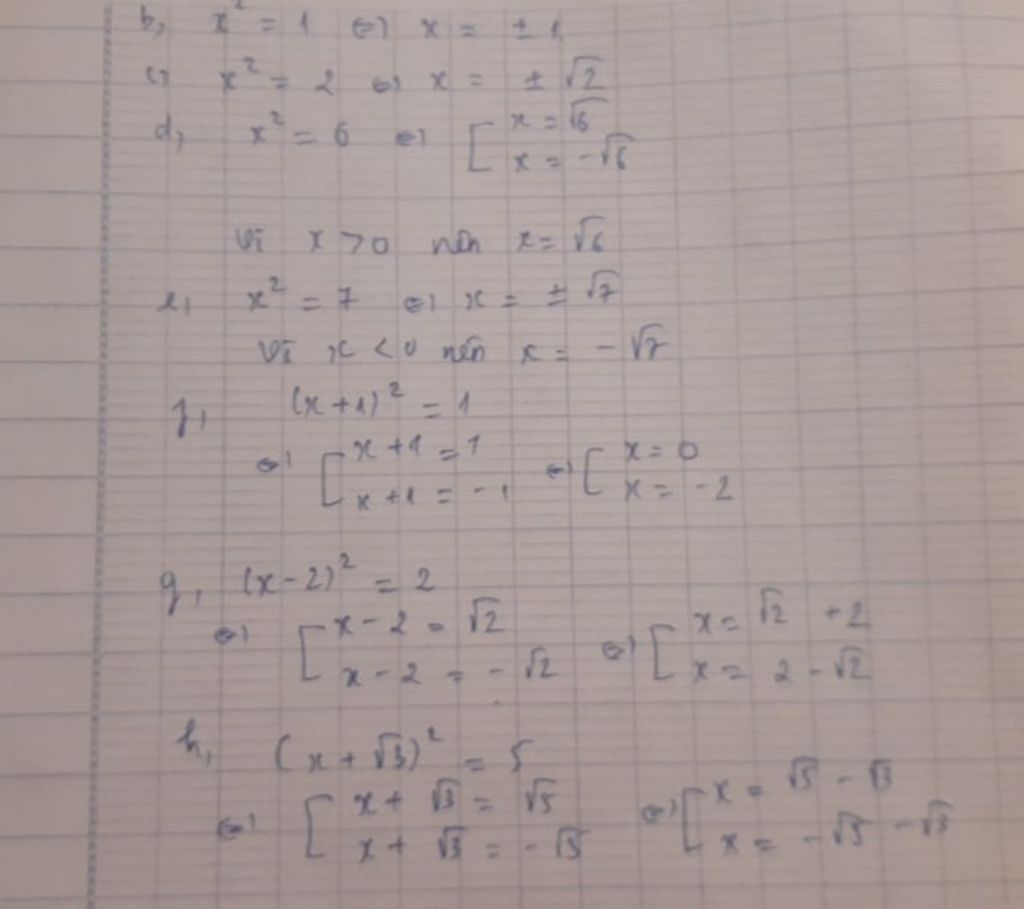 b, x² = 1 ⇔ x = ± 1
c, x² = 2 ⇔ x = ± √2
d, x² = 6 ⇔ [ x = √6
x = -√6
Vì x > 0 nên x = √6
e, x² = 7 ⇔ x = ± √7
Vì x < 0 nên x = - √7
f, (x + 1)² = 1
⇔ [ x + 1 = 1 ⇔ [ x = 0
x + 1 = - 1 x = - 2
g, (x - 2)² = 2
⇔ [ x - 2 = √2 ⇔ [ x = √2 + 2
x - 2 = - √2 x = 2 - √2
h, (x + √3)² = 5
⇔ [ x + √3 = √5 ⇔ [ x = √5 - √3
x + √3 = - √5 x = - √5 - √3